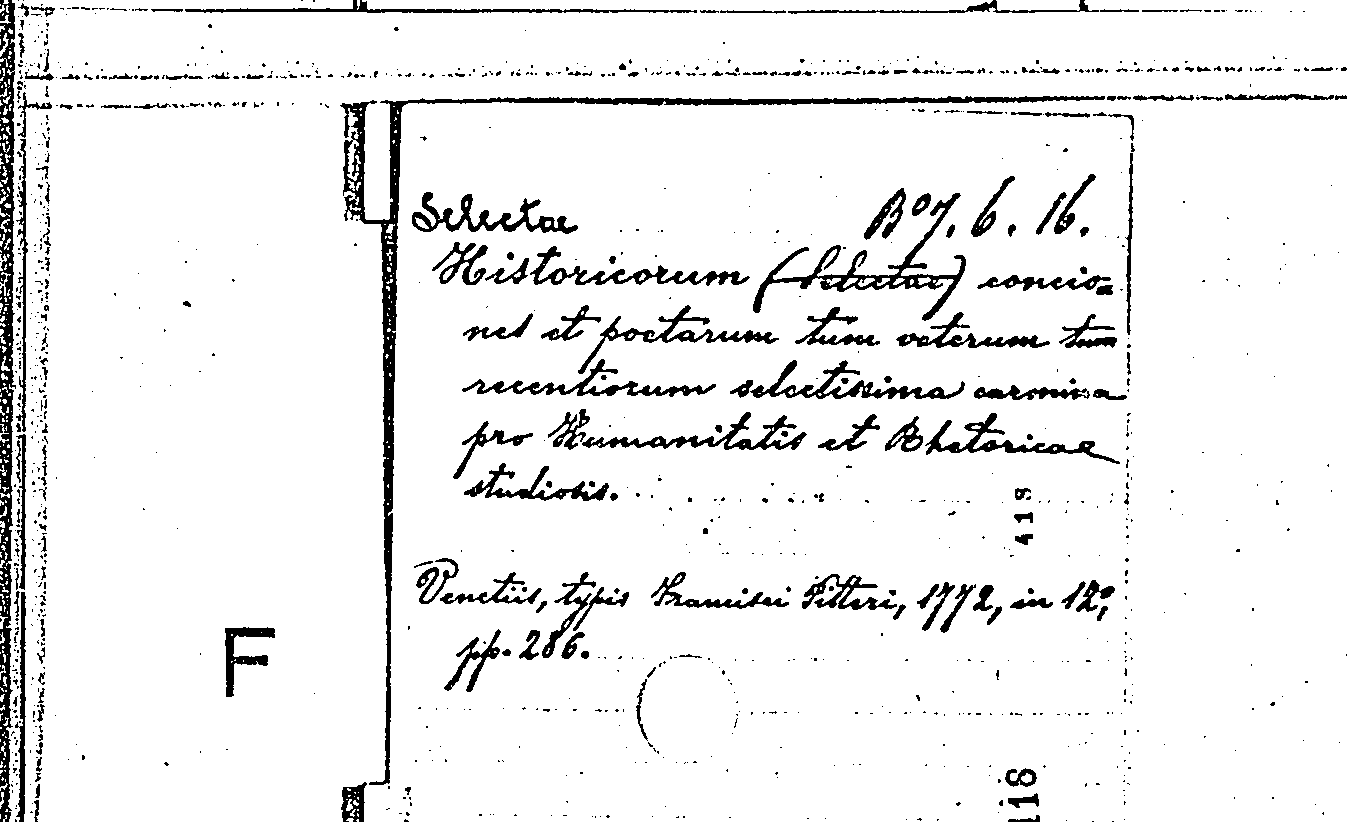 Selectae B°7. 6. 16.
Historicorum (Selectae) concio=
nes et poetarum tum veterum tum
recentiorum selectissima carmina
pro Humanitatis et Rhetoricae
studiosis.
419
Venetiis, typis Francisci Pitteri, 1772, in 12°,
pp. 286.
F
118